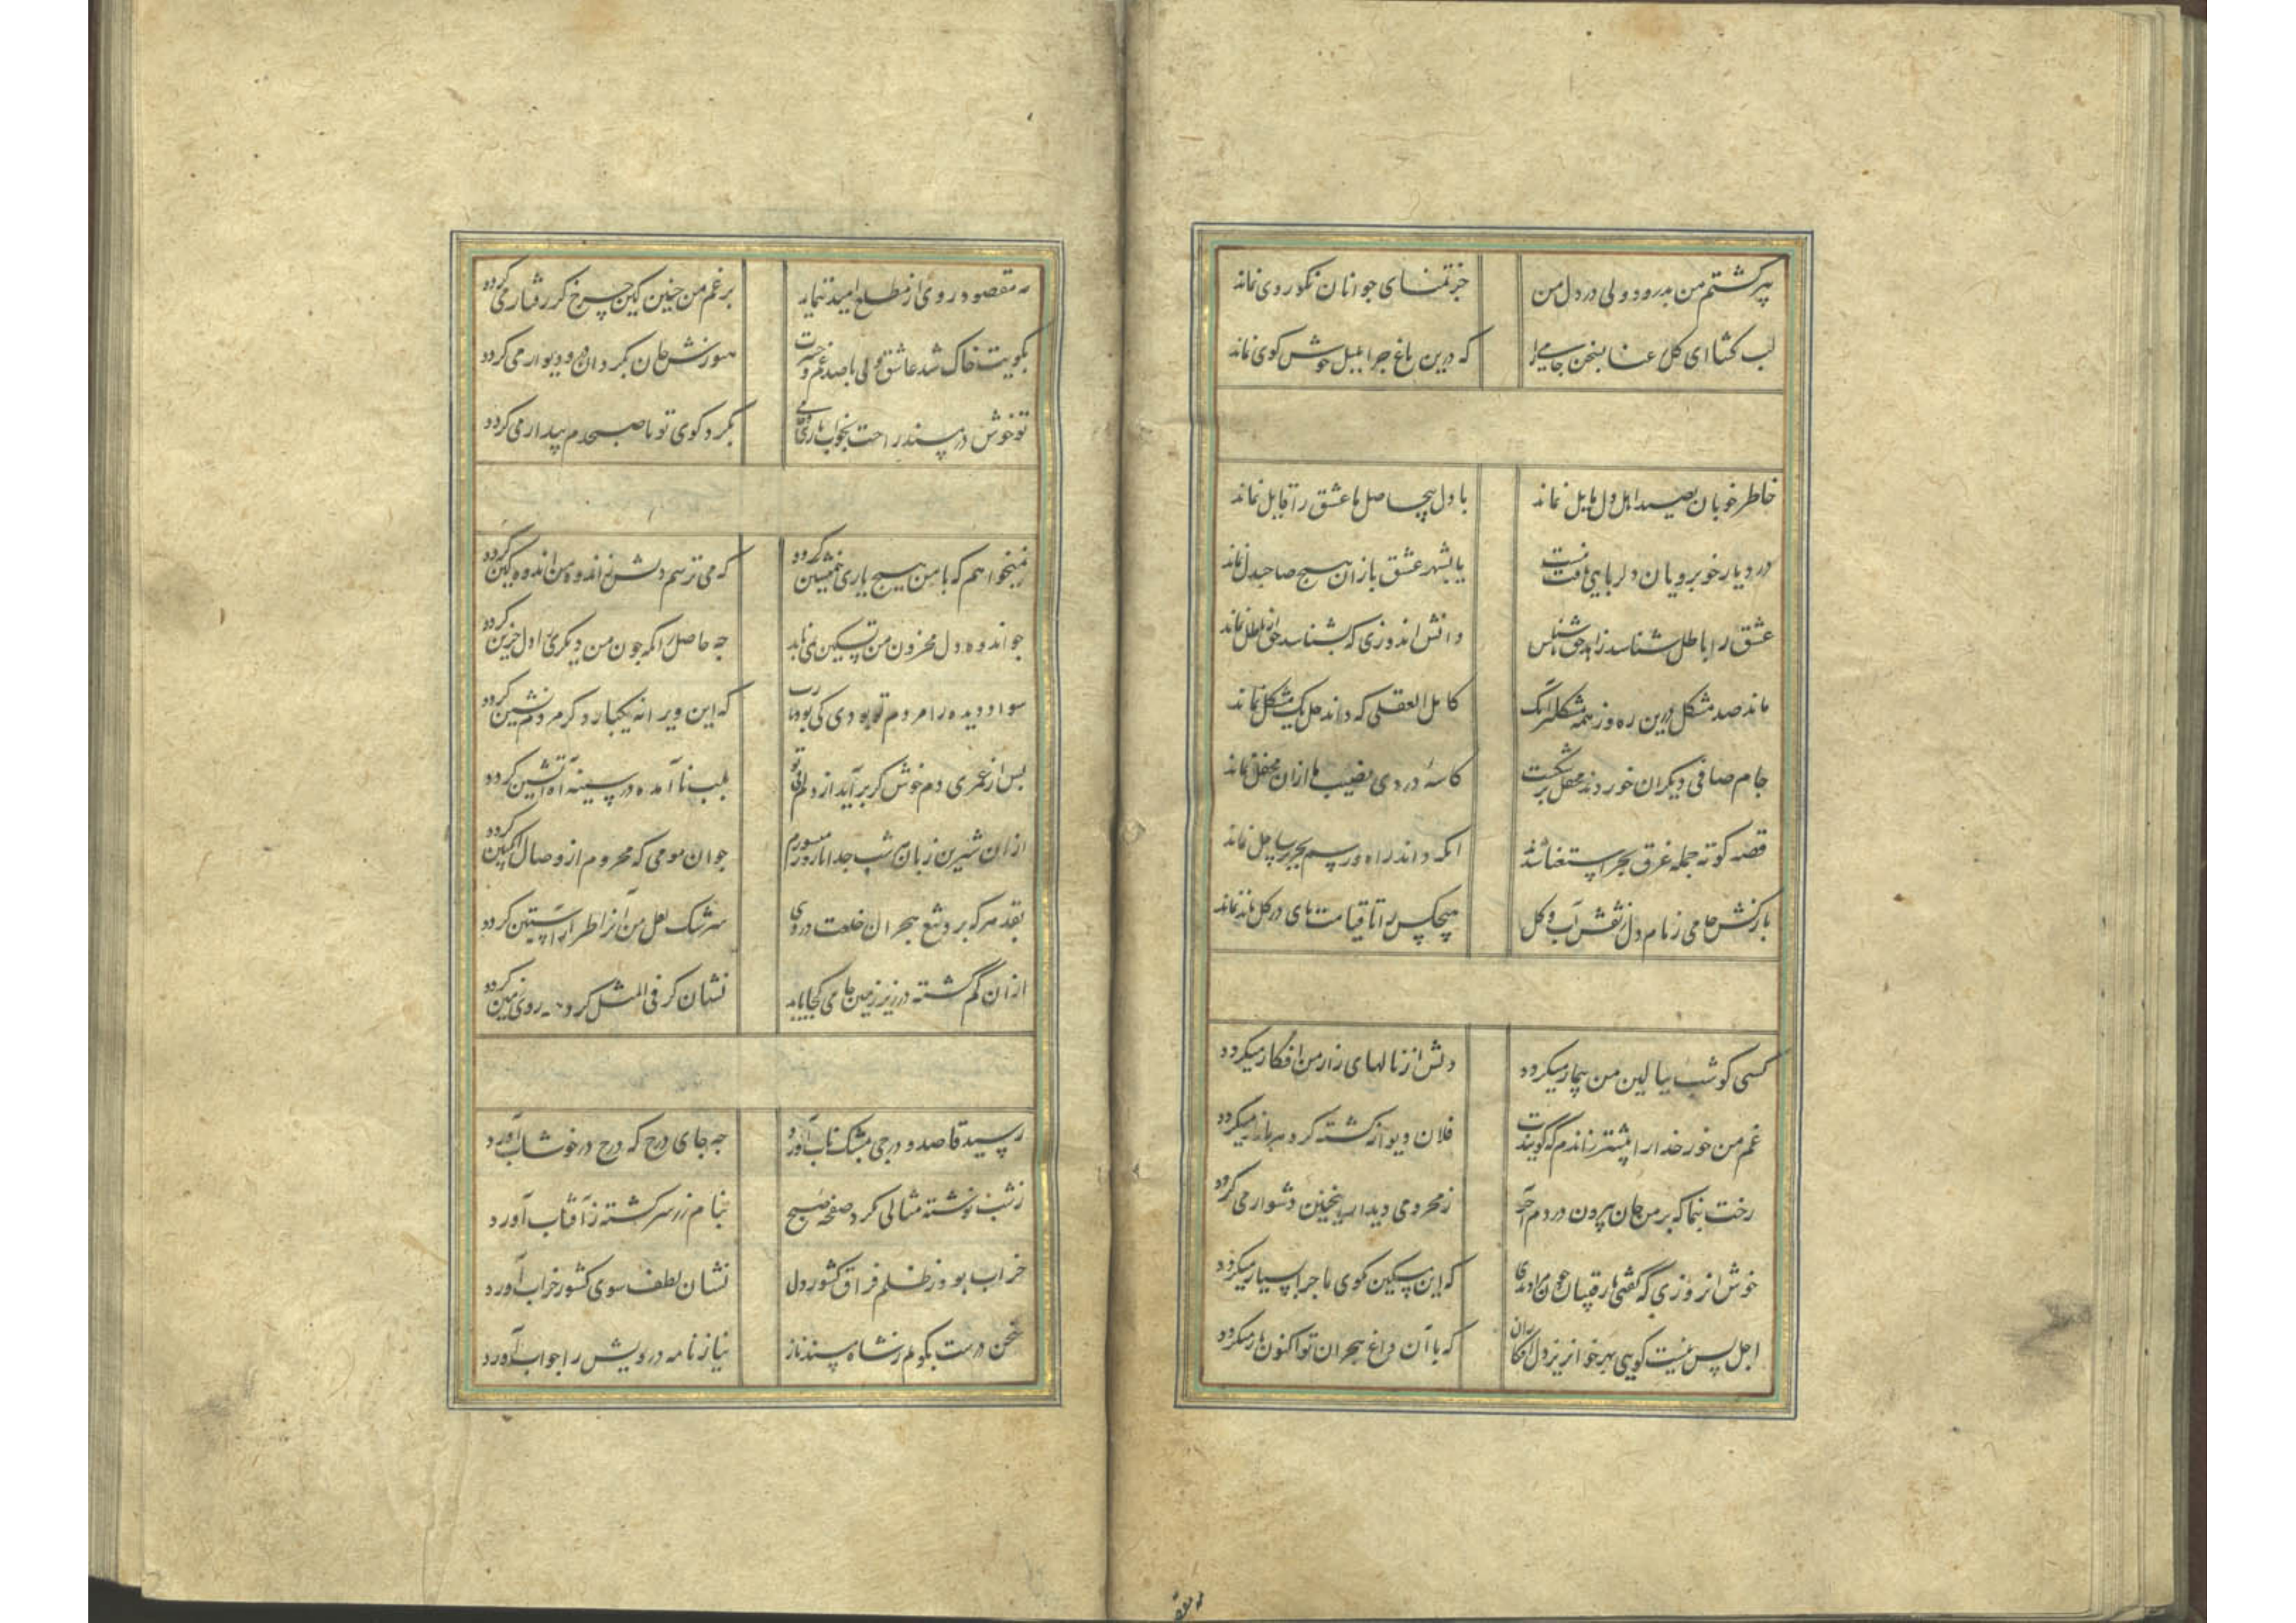 پیر گشتم من بدرود ولی در دل من جز تمنای جوانان نکوروی نماند
لب کشا ای گل رعنا بسخن جامی را که درین باغ جز او بلبل خوش کوی نماند
خاطر خوبان بصید اهل دل مایل نماند یا دل بیحاصل ما عشق را قابل نماند
در دیار خوبرویان دلربایی یافت نیست یا بشهر عشقبازان هیچ صاحبدل نماند
عشق را باطل شناسد زاهد حق ناشناس دانش اندوزی که بشناسد حق از باطل نماند
ماند صد مشکل درین ره وز همه مشکلتر آنک کامل العقلی که داند حل یک مشکل نماند
جام صافی دیکران خوردند محفل بر شکست کاسهٔ دردی نصیب ما ازان محفل نماند
قصه کوته جمله غرق بحر استغنا شدند آنکه داند راه و رسم بحر بر ساحل نماند
بازکش جامی زمام دل ز نقش آب و گل هیچکس را تا قیامت پای در گل ماند نماند
کسی کو شب ببالین من بیمار میکردد دلش از نالهای زار من افکار میکردد
غم من خور خدا را پیشتر زاندم که گویندت فلان دیوانه گشته گرد هر بازار میکردد
رخت بنما که بر من جان سپردن در دم آخر ز محرومی دیدارت چنین دشوار می‌کردد
خوش آن روزی که گفتی با رقیبان چون مرا دیدی که این مسکین بکوی ما چرا بسیار میکردد
اجل بس نیست گویی بهر خونریز دل افکاران که با آن داغ هجران تو اکنون یار میکردد
مه مقصود روی از مطلع امید ننماید بر غم من چنین کین چرخ کژرفتار می‌کردد
بکویت خاک شد عاشق ولی با صد غم و حسرت هنوزش جان بکرد آن در و دیوار می‌کردد
تو خوش در بسند راحت بخواب ناز کز جامی بکرد کوی تو تا صبحدم بیدار می‌کردد
نمیخواهم که با من هیچ یاری همنشین کردد که می ترسم دلش ز اندوه من اندوهکین کردد
چو اندوه دل محزون من تسکین نمی‌یابد چه حاصل زانکه چون من دیکری را دل حزین کردد
سواد دیده را مردم تو بودی کی بود یارب که این ویرانه یکبار دکر مردم نشین کردد
پس از عمری دم خوش کر برآید از دلم بی تو بلب ناآمده در سینه آه آتشین کردد
ازان شیرین زبان هر شب جدا تا روز می‌سوزم چو آن مومی که محروم از وصال انکبین کردد
بقد هر که بردوزند هجران خلعت دردی سرشک لعل من آنرا طراز آستین کردد
ازان گم گشته در زیر زمین جامی کجا یابد نشان کر فی المثل کرد همه روی زمین کردد
رسید قاصد و درجی ز مشک ناب آورد چه جای درج که درج در خوشاب آورد
ز شب نوشته مثالی کرد صفحه صبح بنام ذره سرگشته ز آفتاب آورد
خراب بود ز ظلم فراق کشور دل نشان لطف سوی کشور خراب آورد
سخن درست بکویم ز شاه مسند ناز نیازنامه درویش را جواب آورد